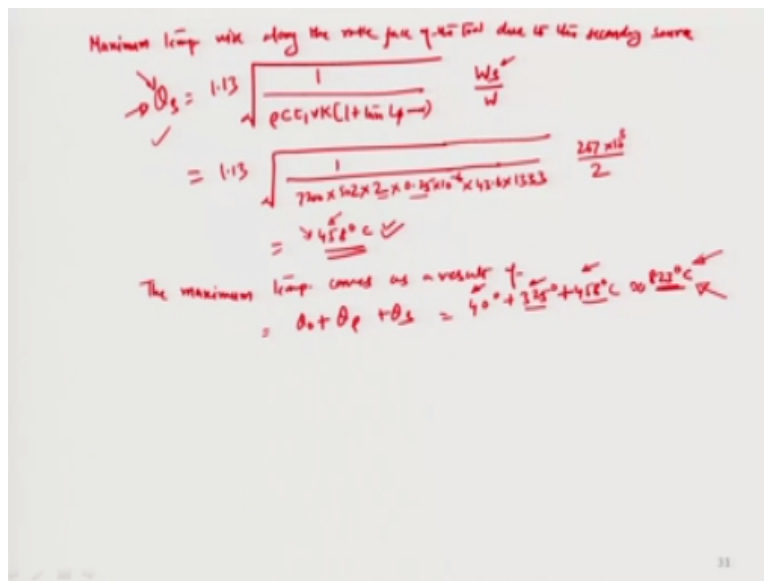 Maximum temp rise along the rake face of the tool due to the secondary source
θs = 1.13 √(1 / ρc t₁ v K (1 + tan(φ-α))) Ws/W
= 1.13 √(1 / 7200 × 502 × 2 × 0.25 × 10⁻⁶ × 43.6 × 1.333) 267 × 10³ / 2
= 458° c
The maximum temp. comes as a result of
= θ₀ + θp + θs = 40° + 325° + 458° C ≈ 823° C
31